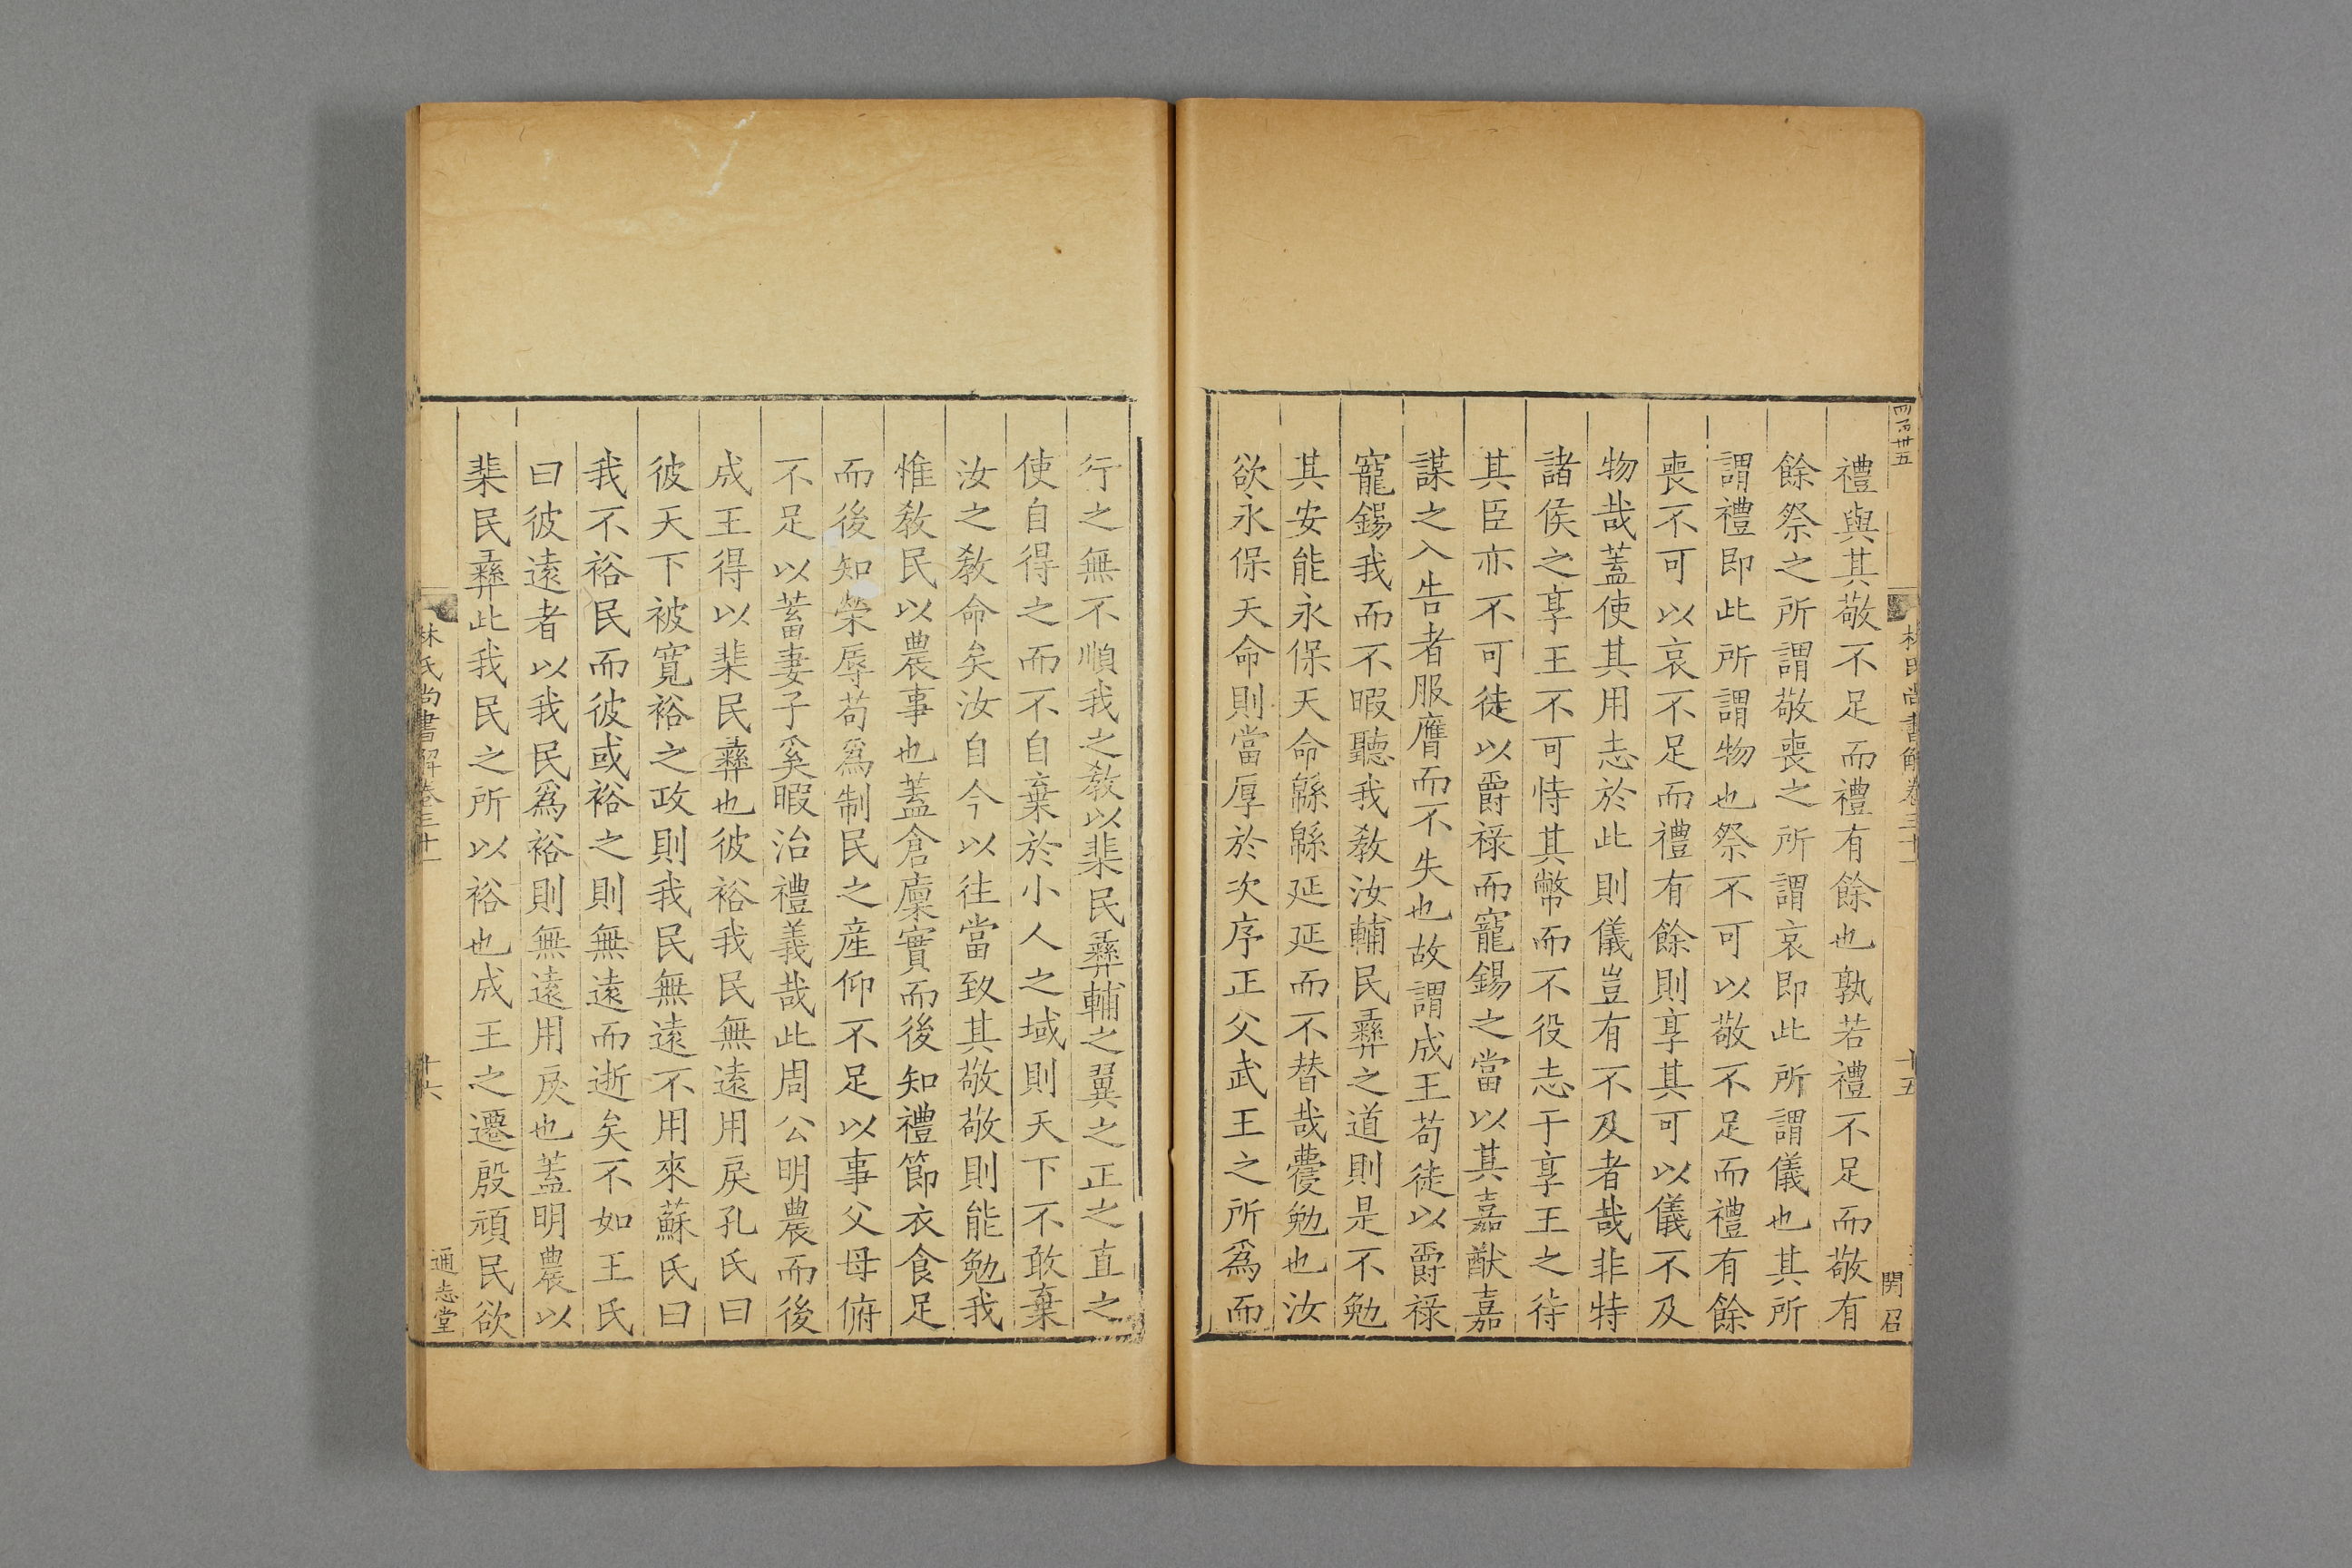 四百卅五
林氏尚書解卷三十一
十五
開召
禮與其敬不足而禮有餘也孰若禮不足而敬有
餘祭之所謂敬喪之所謂哀即此所謂儀也其所
謂禮即此所謂物也祭不可以敬不足而禮有餘
喪不可以哀不足而禮有餘則享其可以儀不及
物哉蓋使其用志於此則儀豈有不及者哉非特
諸侯之享王不可恃其幣而不役志于享王之待
其臣亦不可徒以爵祿而寵錫之當以其嘉猷嘉
謀之入告者服膺而不失也故謂成王苟徒以爵祿
寵錫我而不暇聽我敎汝輔民彝之道則是不勉
其安能永保天命緜緜延延而不替哉蘉勉也汝
欲永保天命則當厚於次序正父武王之所爲而
行之無不順我之敎以棐民彝輔之翼之正之直之
使自得之而不自棄於小人之域則天下不敢棄
汝之敎命矣汝自今以往當致其敬敬則能勉我
惟敎民以農事也蓋倉廩實而後知禮節衣食足
而後知榮辱苟爲制民之産仰不足以事父母俯
不足以蓄妻子奚暇治禮義哉此周公明農而後
成王得以棐民彝也彼裕我民無遠用戾孔氏曰
彼天下被寬裕之政則我民無遠不用來蘇氏曰
我不裕民而彼或裕之則無遠而逝矣不如王氏
曰彼遠者以我民爲裕則無遠用戾也蓋明農以
棐民彝此我民之所以裕也成王之遷殷頑民欲
林氏尚書解卷三十一
十六
通志堂